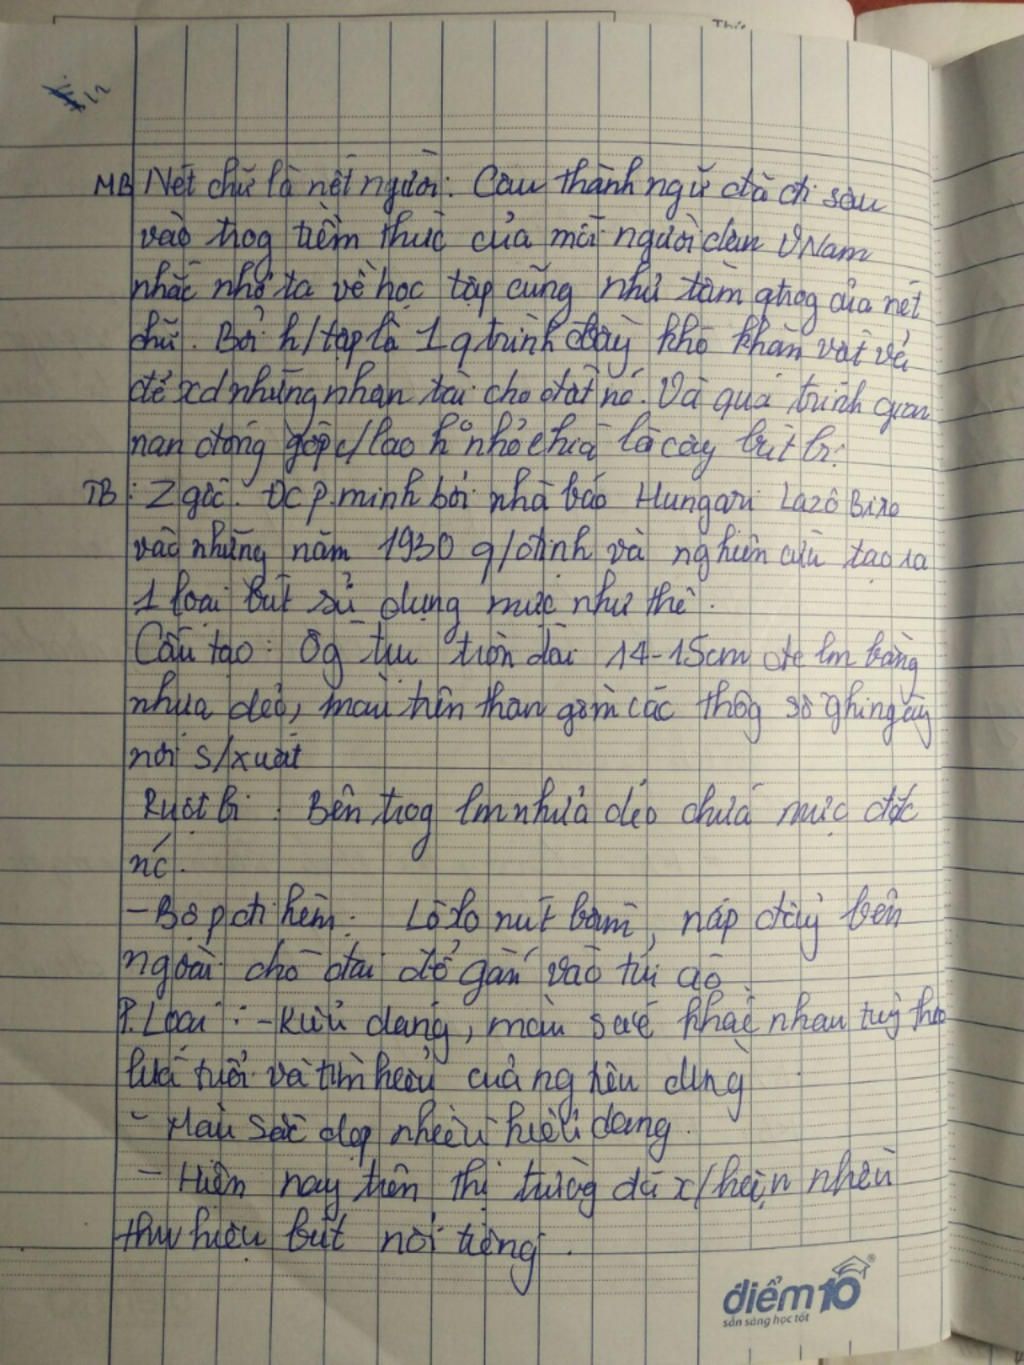 MB Nét chữ là nết người. Câu thành ngữ đã đi sâu
vào trog tiềm thức của mỗi người dân VNam
nhắc nhở ta về học tập cũng như tầm qtrog của nét
chữ. Bởi h/tập là 1 q trình đầy khó khăn vất vả
để xd những nhân tài cho đất nc. Và quá trình gian
nan đóng góp c/lao k nhỏ chia là cây bút bi.
TB: Z gốc. ĐC p.minh bởi nhà báo Hungari Lazô Biro
vào những năm 1930 q/định và nghiên cứu tạo ra
1 loại bút sử dụng mực như thế.
Cấu tạo: Ốg trụ tròn dài 14-15cm đc lm bằng
nhựa dẻo, màu trên thân gồm các thôg số ghi ngày
nơi s/xuất
Ruột bi: Bên trog lm nhựa dẻo chứa mực đặc
nc.
- Bộ p đi kèm: Lò xo nút bấm, nắp đậy bên
ngoài chỗ đai để gắn vào túi áo
P.Loại: - Kiểu dáng, màu sắc khác nhau tuỳ theo
lứa tuổi và của ng tiêu dùng
- Màu sắc đẹp nhiều kiểu dáng.
- Hiện nay trên thị trường đã x/hiện nhiều
thư hiệu bút nổi tiếng.
điểm10
sẵn sàng học tốt